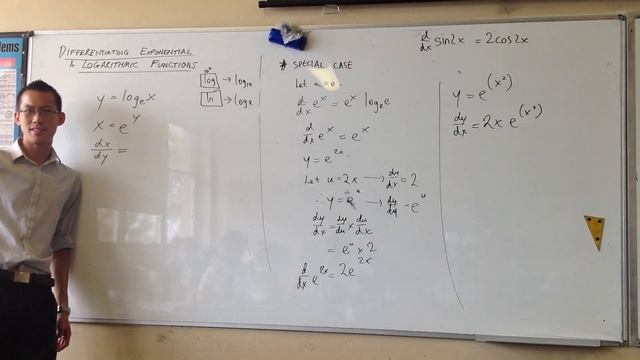 DIFFERENTIATING EXPONENTIAL
& LOGARITHMIC FUNCTIONS
y = logₑx
x = e^y
dx/dy =
log → log₁₀
ln → logₑ
* SPECIAL CASE
Let a = e
d/dx e^x = e^x logₑe
d/dx e^x = e^x
y = e^(2x)
Let u = 2x → du/dx = 2
∴ y = e^u → dy/du = e^u
dy/dx = dy/du × du/dx
= e^u × 2
d/dx e^(2x) = 2e^(2x)
d/dx sin2x = 2cos2x
y = e^(x²)
dy/dx = 2x e^(x²)